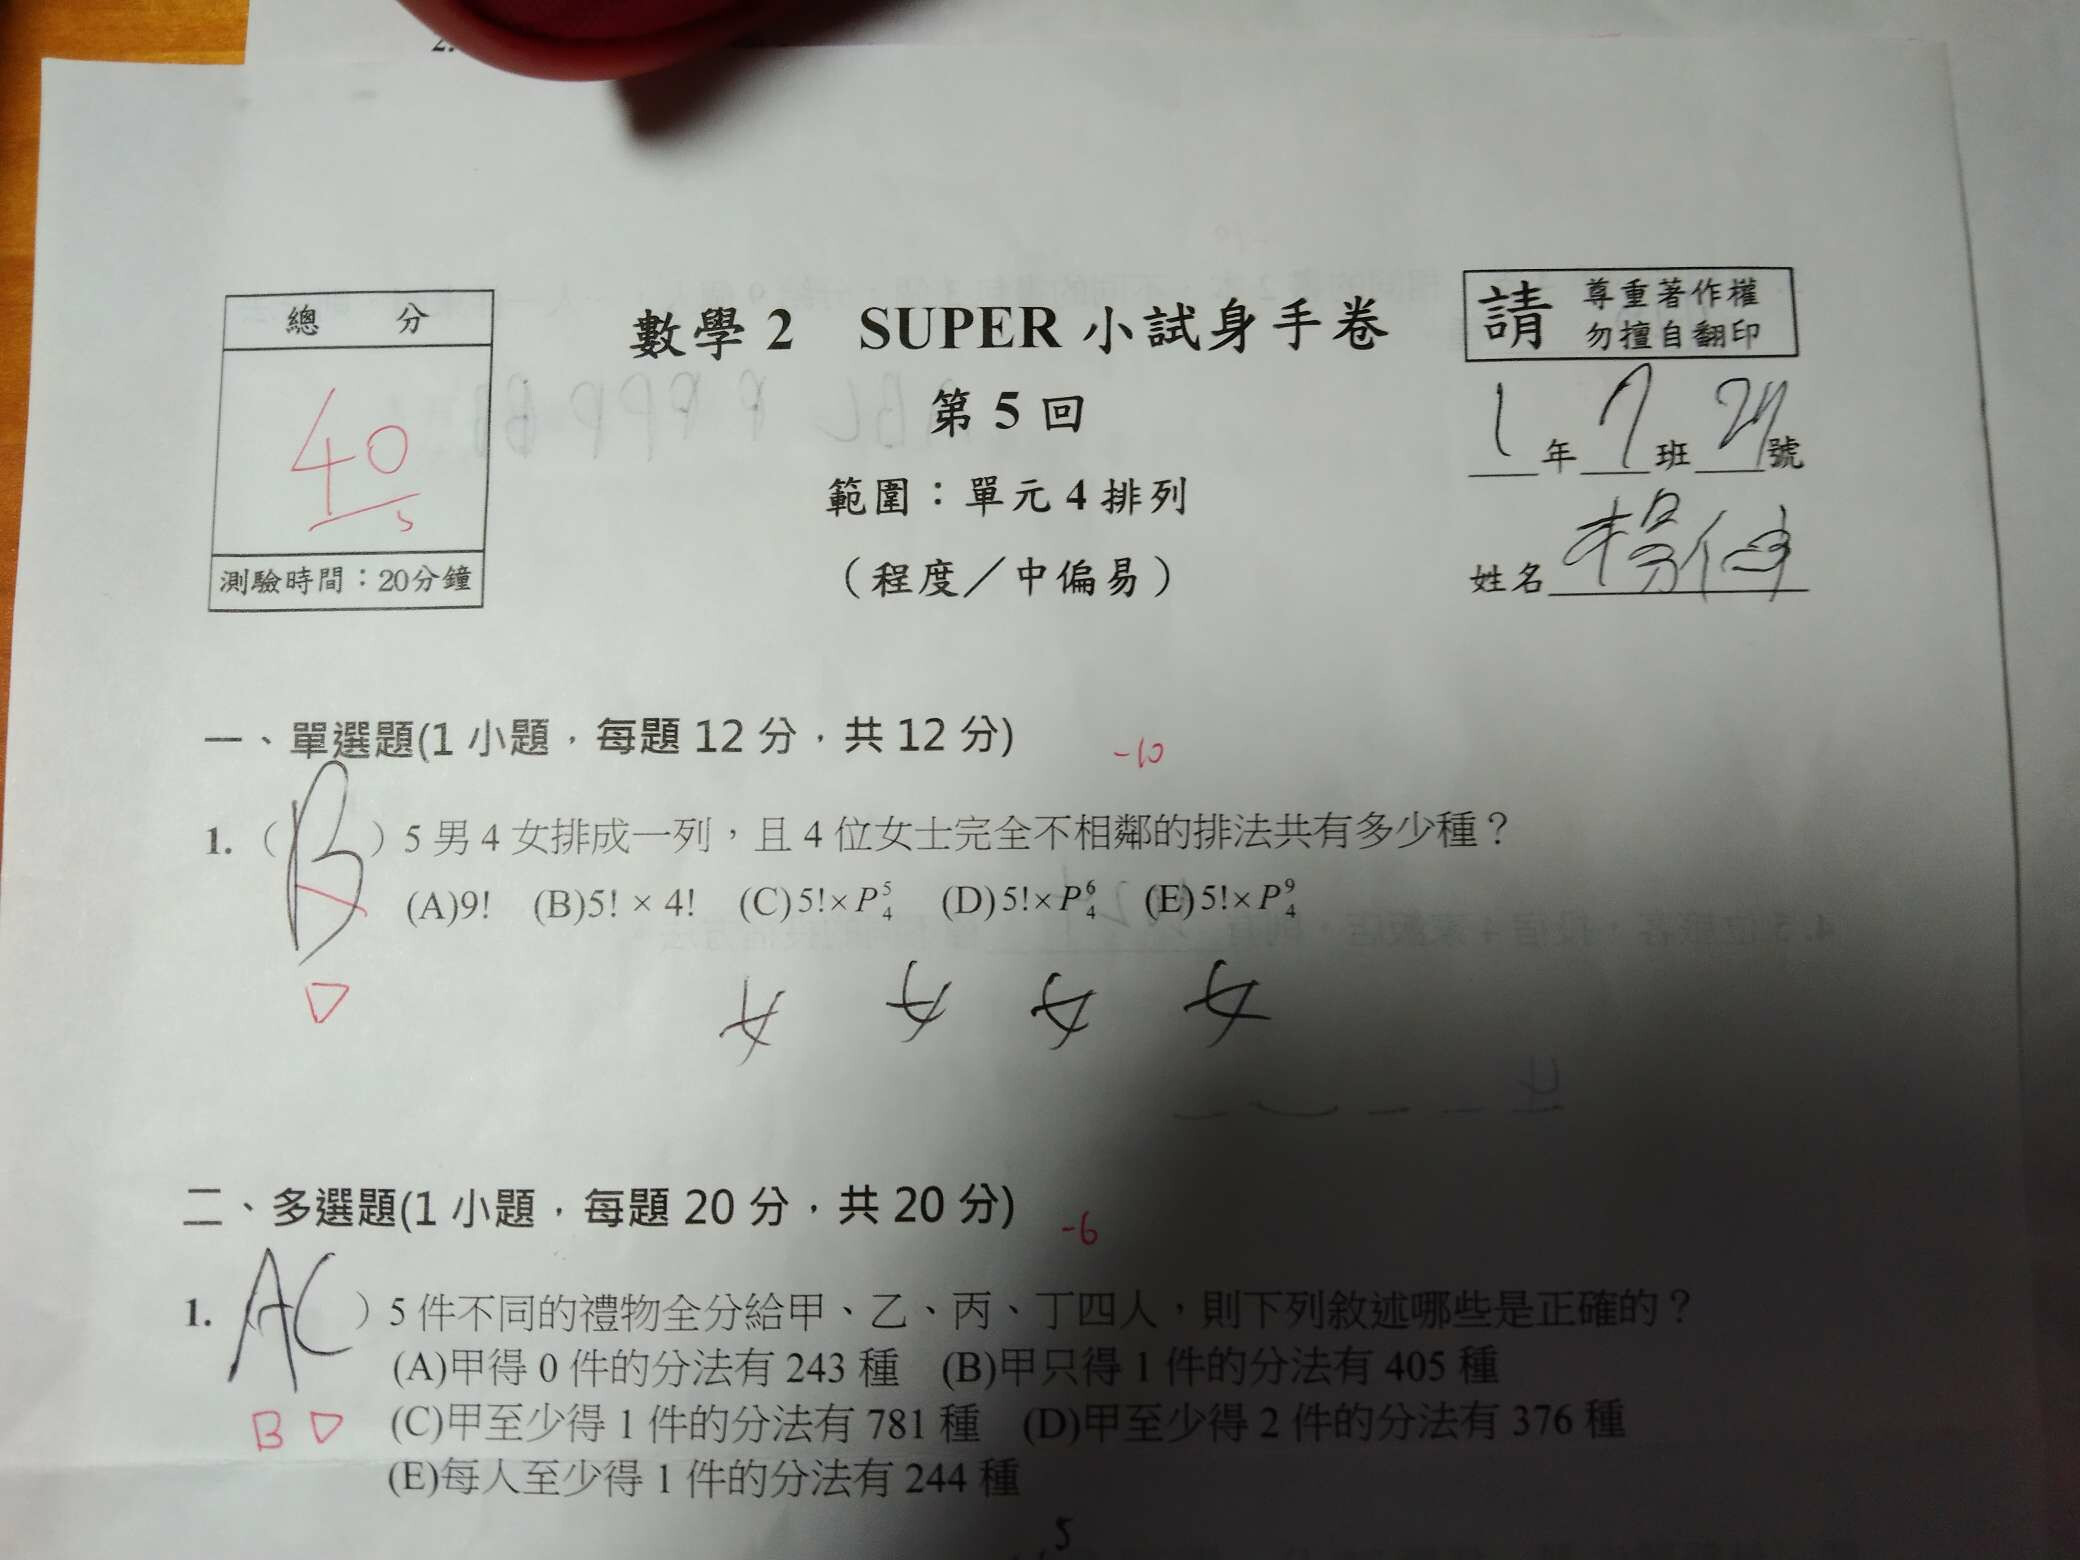 2.
總 分
40
測驗時間：20分鐘
數學 2 SUPER 小試身手卷
第 5 回
範圍：單元 4 排列
（程度／中偏易）
請 尊重著作權
勿擅自翻印
1 年 7 班 27 號
姓名 楊
一、單選題(1 小題，每題 12 分，共 12 分)
-10
1.（B）5 男 4 女排成一列，且 4 位女士完全不相鄰的排法共有多少種？
(A)9! (B)5! × 4! (C)5!×P⁵₄ (D)5!×P⁶₄ (E)5!×P⁹₄
D
女 女 女 女
二、多選題(1 小題，每題 20 分，共 20 分)
-6
1.（AC）5 件不同的禮物全分給甲、乙、丙、丁四人，則下列敘述哪些是正確的？
(A)甲得 0 件的分法有 243 種 (B)甲只得 1 件的分法有 405 種
B D
(C)甲至少得 1 件的分法有 781 種 (D)甲至少得 2 件的分法有 376 種
(E)每人至少得 1 件的分法有 244 種
5